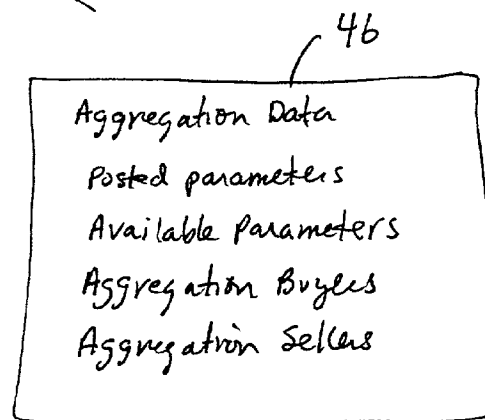 46
Aggregation Data
Posted parameters
Available Parameters
Aggregation Buyers
Aggregation Sellers